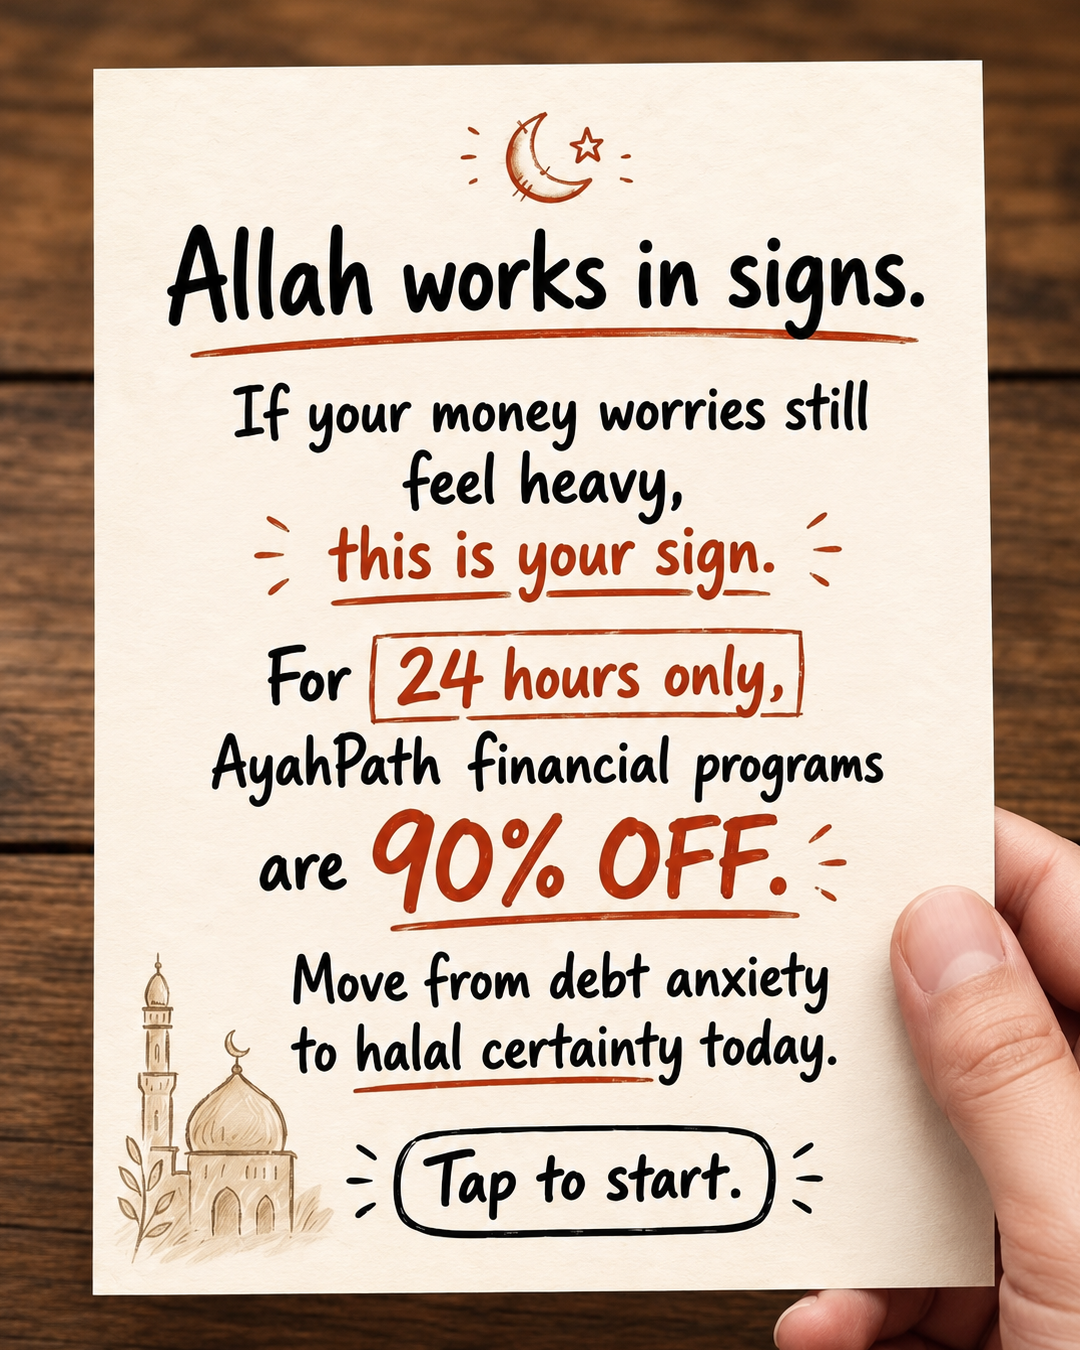 Allah works in signs.
If your money worries still
feel heavy,
this is your sign.
For 24 hours only,
AyahPath financial programs
are 90% OFF.
Move from debt anxiety
to halal certainty today.
Tap to start.